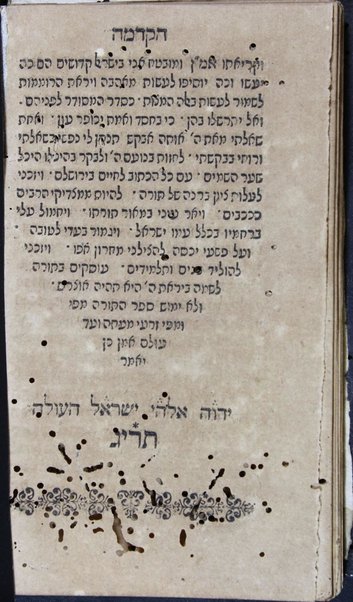 הקדמה
וקריאתו אמ"ן ומובטח אני בישראל קדושים הם כה
עשו וכה יוסיפו לעשות מאהבה ויראת הרוממות
לשמור לעשות בלה המצות כסדר המסודר לפניהם
ואל יתרשלו בהן כי בחסד ואמת יכופר עון ואחת
שאלתי מאת ה' אותה אבקש תנתן לי נפשי בשאלתי
ורוחי בבקשתי לחזות בנועם ה' ולבקר בהיכלו היכל
שער השמים עם כל הכתוב לחיים בירושלם ויזכני
לעלות בתורה להיות ממצדיקי הרבים
ככוכבים ויאר עיני במאור תורתו ויחמול עלי
ברחמיו בכלל עמו ישראל ויגמור בעדי לטובה
ועל פשעי יכסה להצילני מחרון אפו ויזכני
להוליד בנים ותלמידים עוסקים בתורה
לשמה ביראת ה' היא תהיה אוצרם
ולא ימוש ספר התורה מפי
ומפי זרעי מעתה ועד
עולם אמן כן
יאמר
יהוה אלהי ישראל העולה
תרי"ג